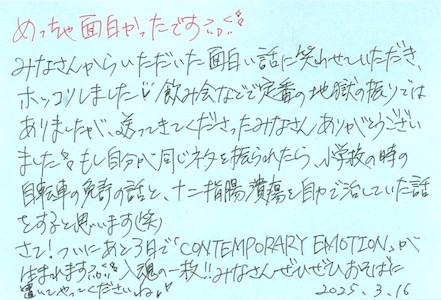 めっちゃ面白かったです
みなさんからいただいた面白い話に笑わせていただき、
ホッコリしました♡飲み会などで定番の地獄の振りでは
ありましたが、送ってきてくださったみなさんありがとうござい
ました もし自分が同じネタを振られたら、小学校の時の
自転車の免許の話と、十二指腸潰瘍を自力で治していた話
をすると思います(笑)
さて!ついにあと3日で「CONTEMPORARY EMOTION」が
生まれます 入魂の一枚!!みなさんぜひぜひおそばに
置いてやってくださいね♡
2025.3.16